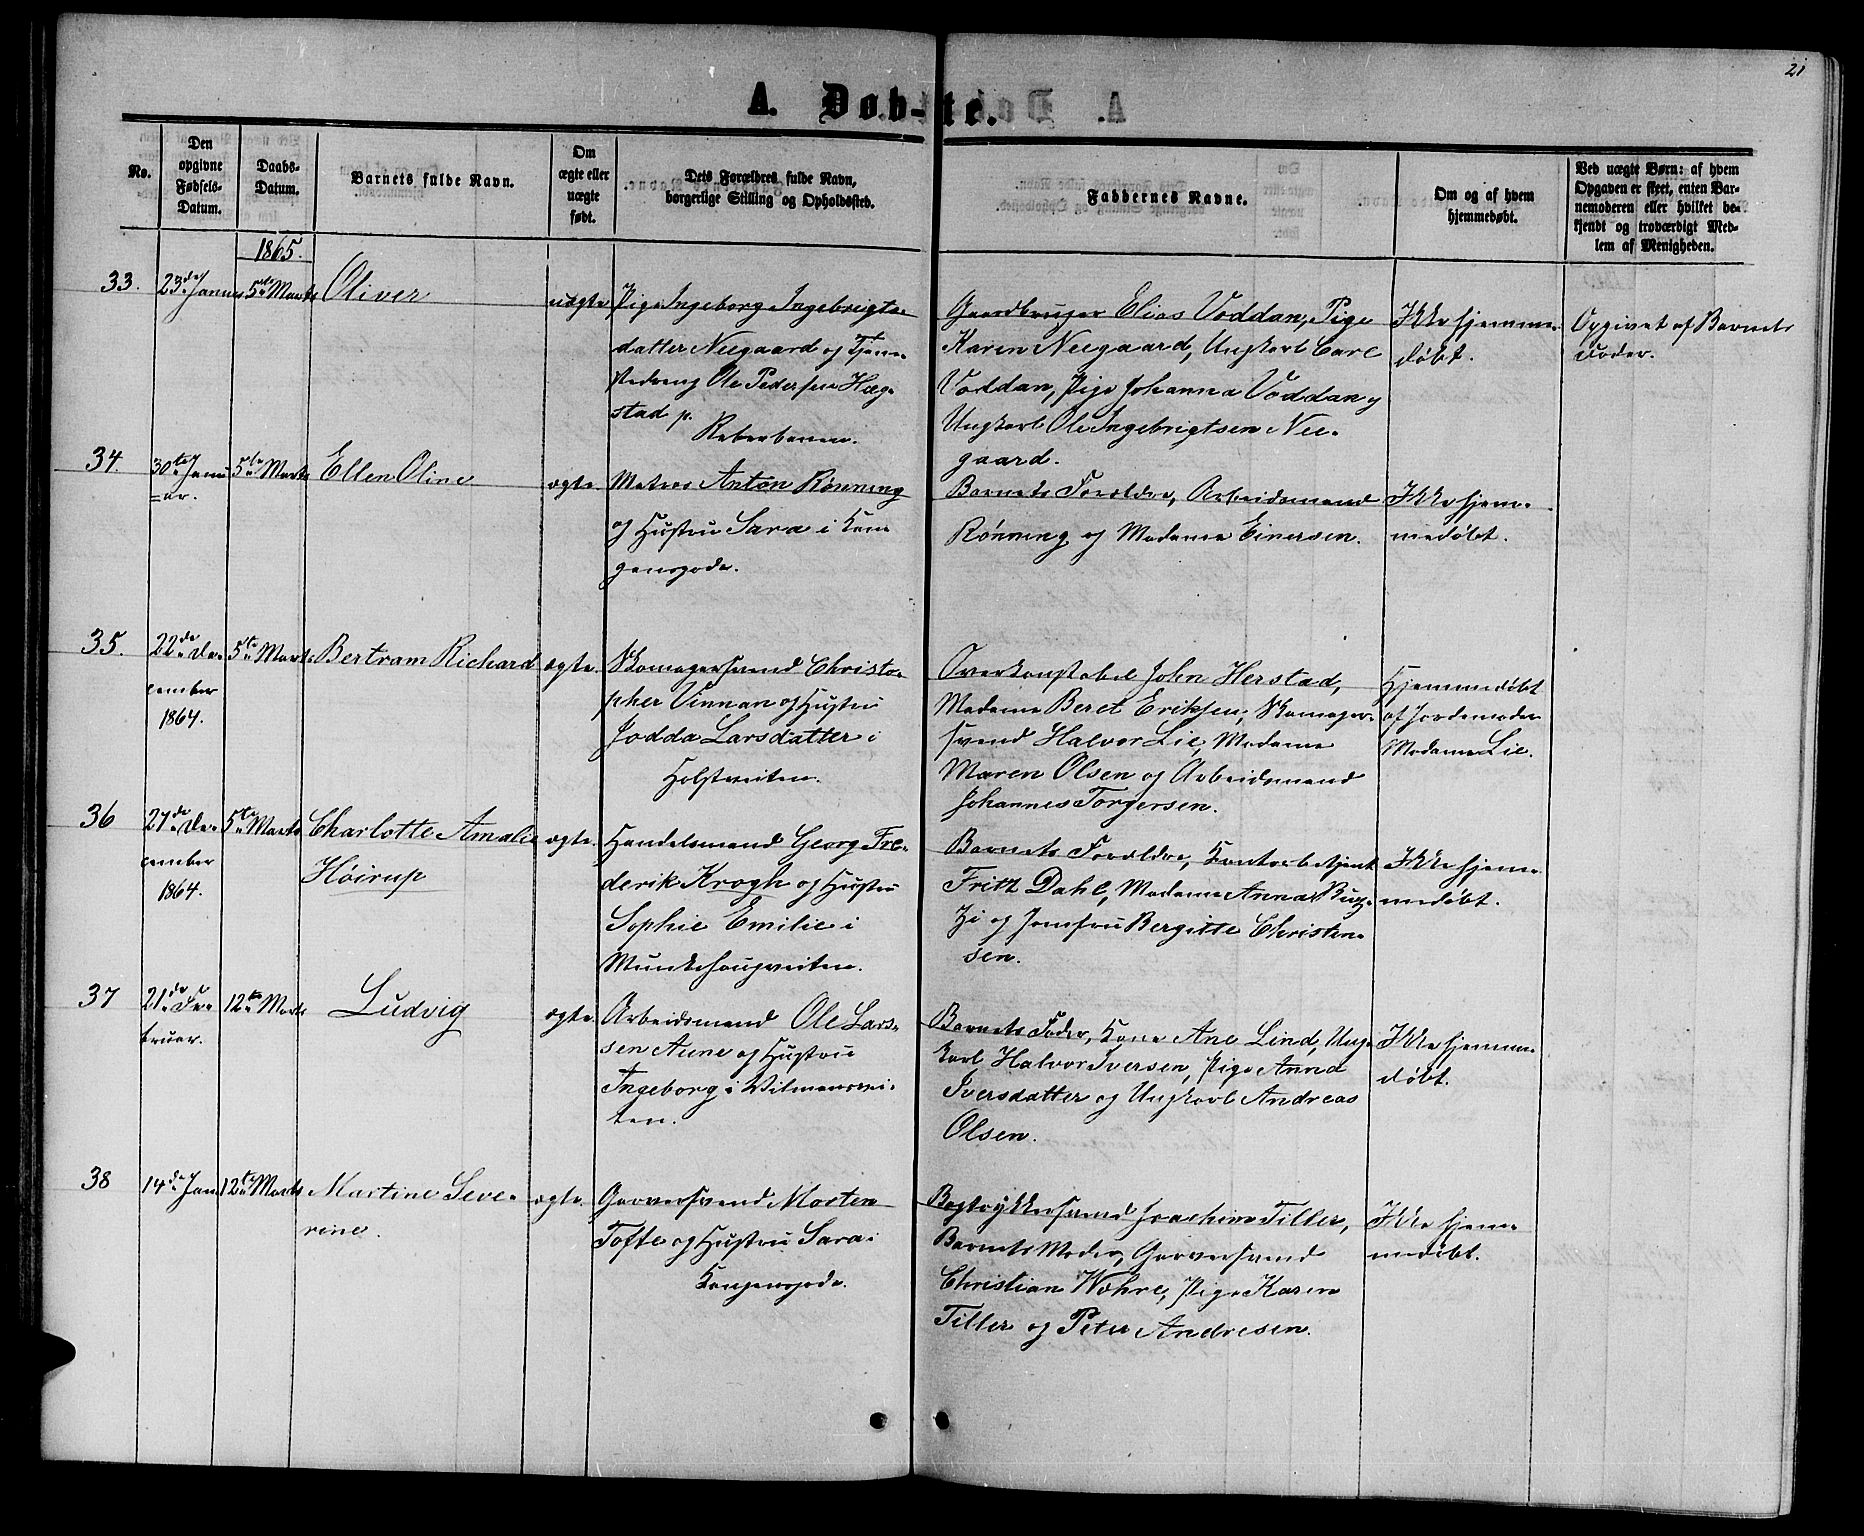 21
A. Døb-te.
No.
Den opgivne Fødsels-Datum.
Daabs-Datum.
Barnets fulde Navn.
Om ægte eller uægte født.
Dets Forældres fulde Navn, borgerlige Stilling og Opholdssted.
Faddernes Navne.
Om og af hvem hjemmedøbt.
Ved uægte Børn: af hvem Opgaven er skeet, enten Barnemoderen eller hvilket bekjendt og troværdigt Medlem af Menigheden.
1865.
33. 23de Januar 5te Marts Oliver uægte
Pige Ingeborg Ingebrigts-
datter Neegaard og Tjene-
stedreng Ole Pedersen Hæg-
stad p.
Reberbanen.
Gaardbruger Elias Voddan, Pige
Karen Neegaard, Ungkarl Carl
Voddan, Pige Johanna Voddan og
Ungkarl Ole Ingebrigtsen Nee-
gaard.
Ikke hjemme-
døbt.
Opgivet af Barnets
Moder.
34. 30te Janu-
ar.
5te Marts Ellen Oline ægte
Matros Anton Rönning
og Hustru Sara i Kon-
gensgade.
Barnets Forældre, Arbeidsmand
Rönning og Madame Einersen.
Ikke hjem-
medøbt.
35. 22de De-
cember
1864.
5te Marts Bertram Richard ægte.
Skomagersvend Christo-
pher Vinnan og Hustru
Jodda Larsdatter i
Holstveiten.
Overkonstabel John Herstad,
Madame Beret Eriksen, Skomager-
svend Halvor Lie, Madame
Maren Olsen og Arbeidsmand
Johannes Torgersen.
Hjemmedøbt
af Jordemoder
Madame Lie.
36 27de De-
cember
1864.
5te Marts Charlotte Amalie
Höirup
ægte.
Handelsmand Georg Fre-
derik Krogh og Hustru
Sophie Emilie i
Munkehaugveiten.
Barnets Forældre, Kontorbetjent
Fritz Dahl, Madame Anna Buz-
zi og Jomfru Bergitte Christen-
sen.
Ikke hjem-
medøbt.
37 21de Fe-
bruar.
12te Marts Ludvig ægte
Arbeidsmand Ole Lars-
sen Aune og Hustru
Ingeborg i Wilmannsvei-
ten.
Barnets Fader, Kone Ane Lind, Ung-
karl Halvor Iversen, Pige Anna
Iversdatter og Ungkarl Andreas
Olsen.
Ikke hjemme-
døbt.
38 14de Jan 12te Marts Martine Seve-
rine.
ægte.
Garversvend Morten
Tofte og Hustru Sara i
Kongensgade.
Bogtrykkersvend Joachim Tiller,
Barnets Moder, Garversvend
Christian Wöhre, Pige Karen
Tiller og Peter Andresen.
Ikke hjem-
medøbt.